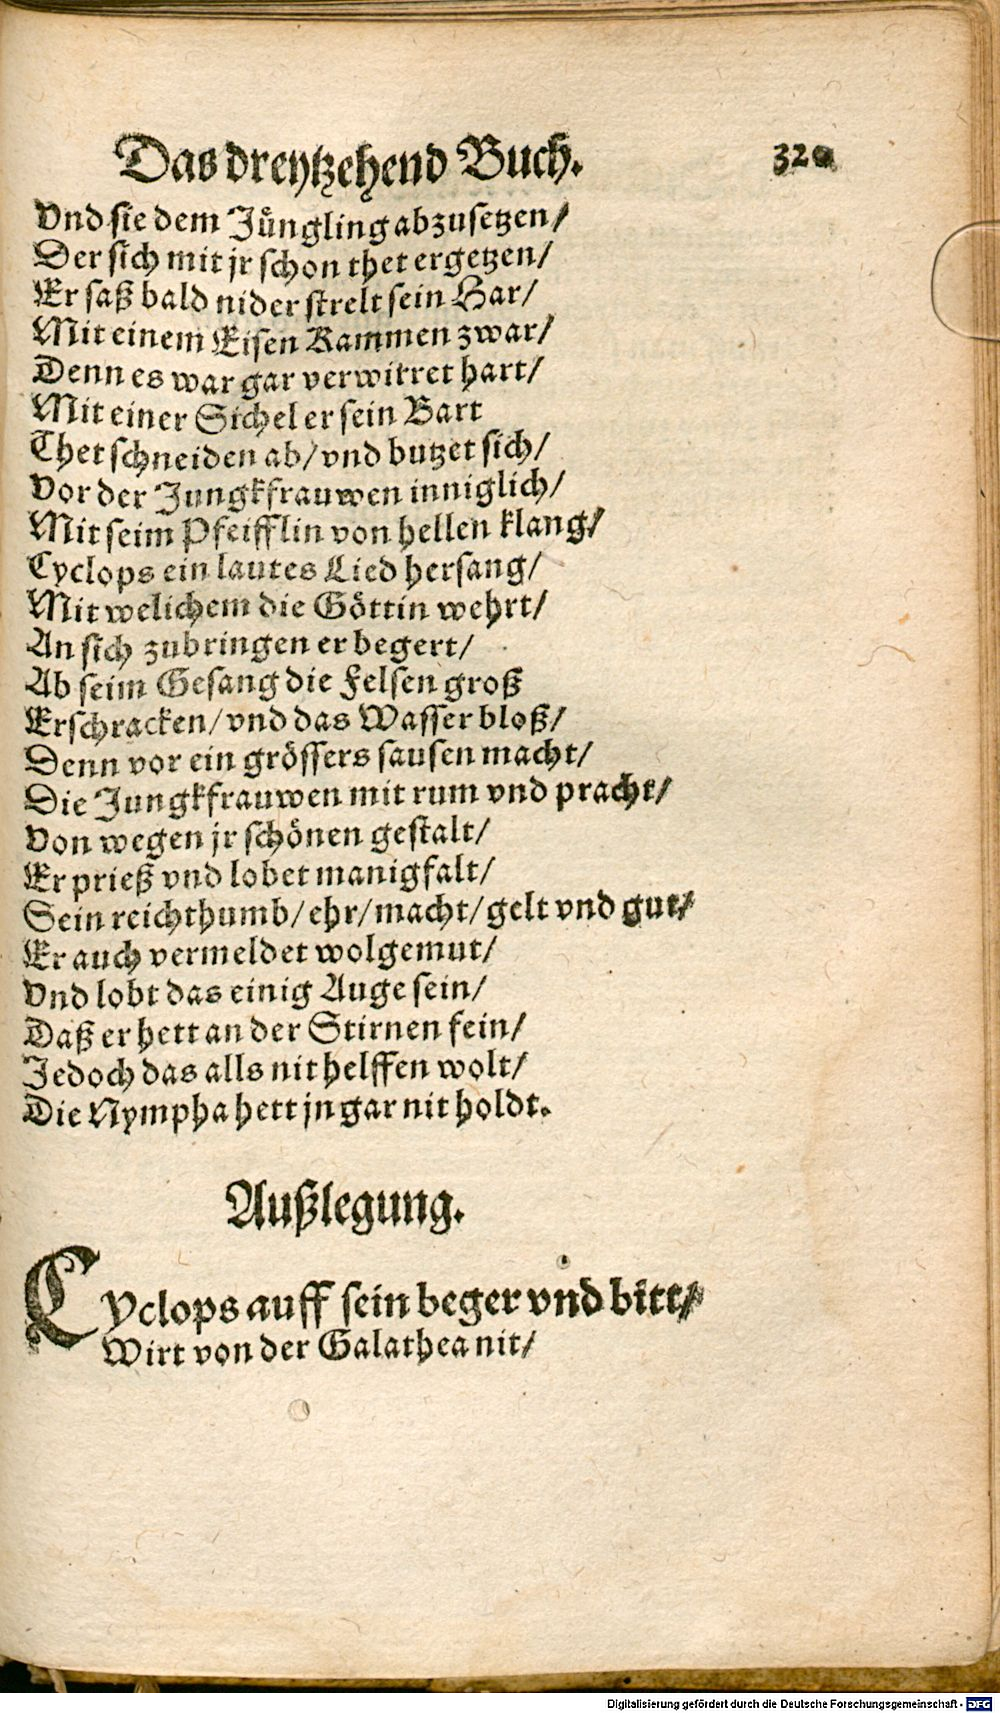 Das dreytzehend Buch. 320
Vnd sie dem Jüngling abzusetzen/
Der sich mit jr schon thet ergetzen/
Er saß bald nider strelt sein Har/
Mit einem Eisen Kammen zwar/
Denn es war gar verwirret hart/
Mit einer Sichel er sein Bart
Thet schneiden ab/ vnd butzet sich/
Vor der Jungkfrauwen inniglich/
Mit seim Pfeifflin von hellen klang/
Cyclops ein lautes Lied hersang/
Mit welichem die Göttin wehrt/
An sich zubringen er begert/
Ab seim Gesang die Felsen groß
Erschracken/ vnd das Wasser bloß/
Denn vor ein grössers sausen macht/
Die Jungkfrauwen mit rum vnd pracht/
Von wegen jr schönen gestalt/
Er prieß vnd lobet manigfalt/
Sein reichthumb/ ehr/ macht/ gelt vnd gut/
Er auch vermeldet wolgemut/
Vnd lobt das einig Auge sein/
Daß er hett an der Stirnen fein/
Jedoch das alls nit helffen wolt/
Die Nympha hett jn gar nit holdt.
Außlegung.
Cyclops auff sein beger vnd bitt/
Wirt von der Galathea nit/
Digitalisierung gefördert durch die Deutsche Forschungsgemeinschaft - DFG